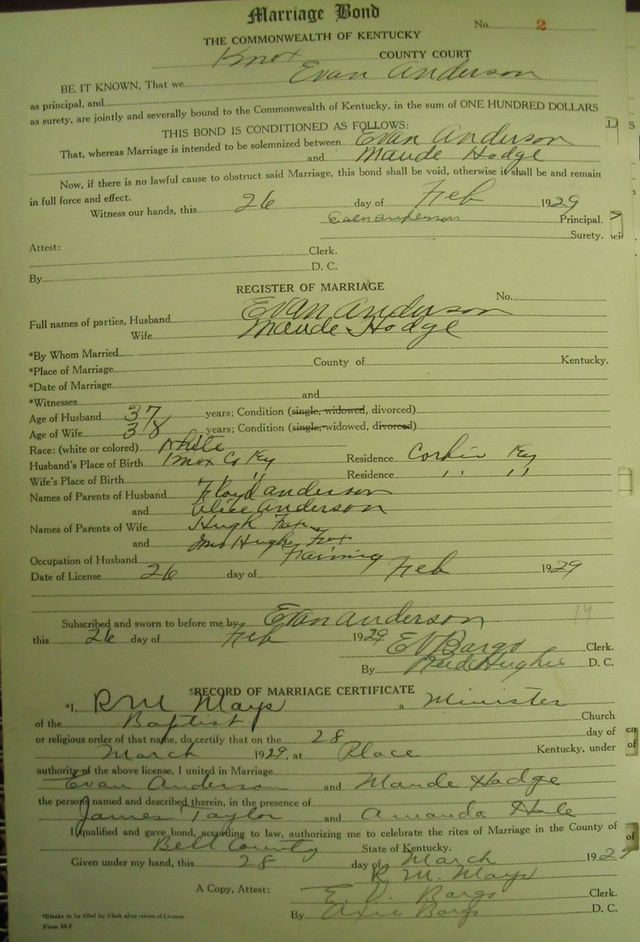 Marriage Bond
No. 2
THE COMMONWEALTH OF KENTUCKY
Knox COUNTY COURT
BE IT KNOWN, That we Evan Anderson
as principal, and
as surety, are jointly and severally bound to the Commonwealth of Kentucky, in the sum of ONE HUNDRED DOLLARS
THIS BOND IS CONDITIONED AS FOLLOWS:
That, whereas Marriage is intended to be solemnized between Evan Anderson
and Maude Hodge
Now, if there is no lawful cause to obstruct said Marriage, this bond shall be void, otherwise it shall be and remain
in full force and effect.
Witness our hands, this 26 day of Feb 1929
Evan Anderson Principal.
Surety.
Attest: Clerk.
By D. C.
REGISTER OF MARRIAGE
No.
Full names of parties, Husband Evan Anderson
Wife Maude Hodge
*By Whom Married
*Place of Marriage County of Kentucky.
*Date of Marriage
*Witnesses and
Age of Husband 37 years; Condition (single, widowed, divorced)
Age of Wife 38 years; Condition (single, widowed, divorced)
Race: (white or colored) White
Husband's Place of Birth Knox Co Ky Residence Corbin Ky
Wife's Place of Birth " " Residence " "
Names of Parents of Husband Floyd Anderson
and Alice Anderson
Names of Parents of Wife Hugh Fox
and Mrs Hugh Fox
Occupation of Husband Farming
Date of License 26 day of Feb 1929
Subscribed and sworn to before me by Evan Anderson
this 26 day of Feb 1929 E V Bargo Clerk.
By Hughes D. C.
*RECORD OF MARRIAGE CERTIFICATE
*I, R M Mays a Minister
of the Baptist Church
or religious order of that name, do certify that on the 28 day of
March 1929, at Place Kentucky, under
authority of the above license, I united in Marriage
Evan Anderson and Maude Hodge
the persons named and described therein, in the presence of
James Taylor and Amanda Hale
I qualified and gave bond, according to law, authorizing me to celebrate the rites of Marriage in the County of
Bell County State of Kentucky.
Given under my hand, this 28 day of March 1929
R. M. Mays
A Copy, Attest: E. V. Bargo Clerk.
By Bargo D. C.
*Blanks to be filled by Clerk after return of License.
Form M-7